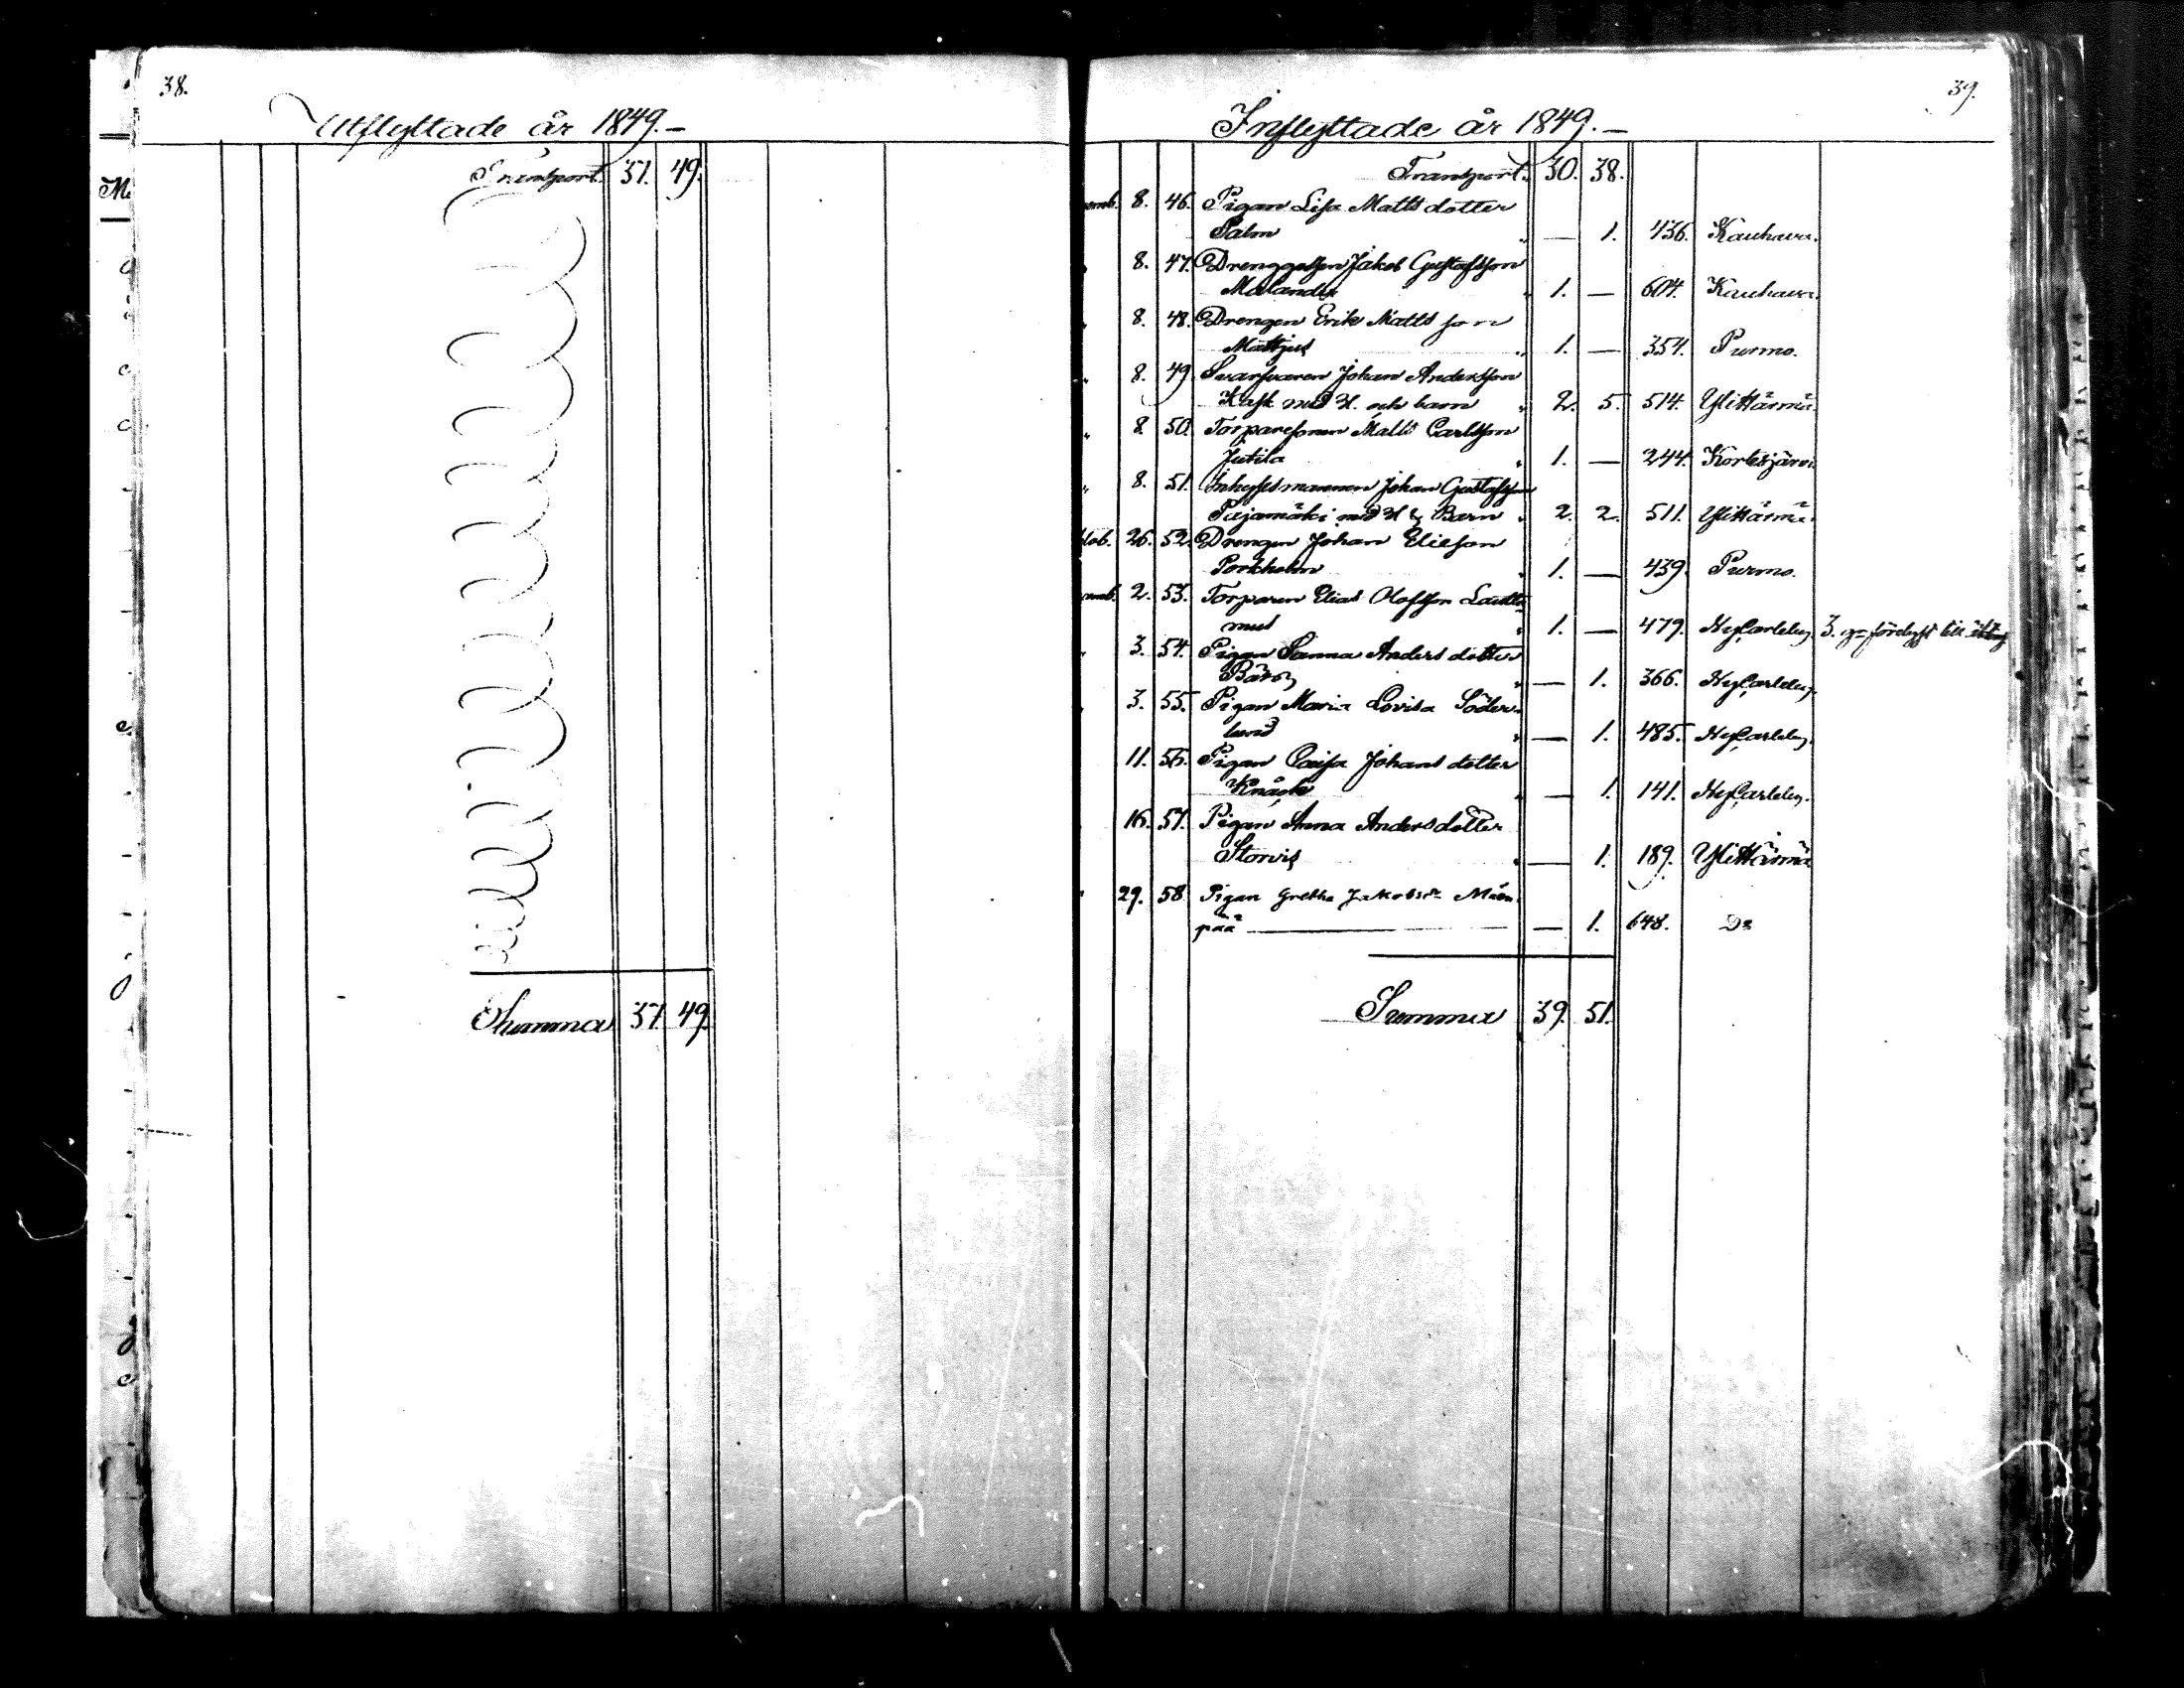 38.
Utflyttade år 1849.
Transport. 37. 49.
Summa 37. 49.
39.
Inflyttade år 1849.
Transport. 30. 38.
8. 46. Pigan Lisa Matts dotter
Palm " — 1. 436. Kauhava.
8. 47. Drenggossen Jakob Gustafsson
Malander " 1. — 604. Kauhava.
8. 48. Drengen Erik Mattsson
Mattjus " 1. — 354. Purmo.
8. 49. Svarfvaren Johan Andersson
Kask med H. och barn " 2. 5. 514. YliHärmä.
8. 50. Torparesonen Matts Carlsson
Jutila " 1. — 244. Kortesjärvi.
8. 51. Inhysesmannen Johan Gustafsson
Pajamäki med H & Barn " 2. 2. 511. YliHärmä.
26. 52. Drengen Johan Eliesson
Porkholm " 1. — 439. Purmo.
2. 53. Torparen Elias Olofsson
" 1. — 479. NyCarleby. 3. till
3. 54. Pigan Sanna Anders dotter
" — 1. 366. NyCarleby.
3. 55. Pigan Maria Lovisa Söder-
lund " — 1. 485. NyCarleby.
11. 56. Pigan Caisa Johans dotter
" — 1. 141. NyCarleby.
16. 57. Pigan Anna Anders dotter
Storvis " — 1. 189. YliHärmä.
29. 58 Pigan Gretha Jakobsdr Mäen-
pää — — 1. 648. Do
Summa 39. 51.